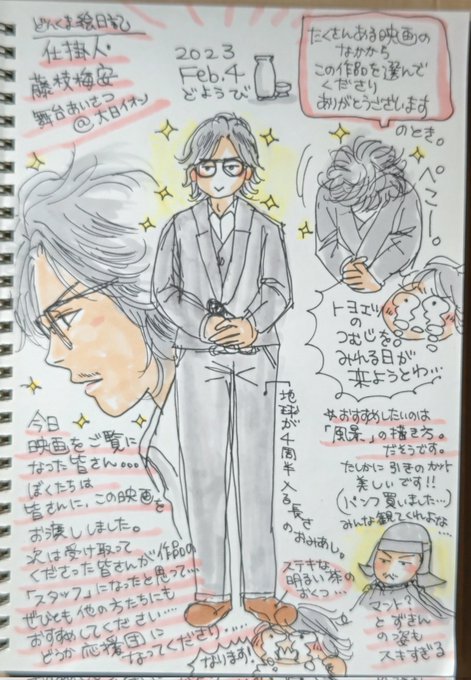 どくくま絵日記
仕掛人
藤枝梅安
舞台あいさつ
@大日イオン
2023
Feb.4
どようび
たくさんある映画の
なかから
この作品を選んで
くださり
ありがとうございます
のとき。
ぺこー。
トヨエツ
の
つむじを。
みれる日が
来ようとわ…
地球が4周半入る長さ
のおみあし。
今日
映画をご覧に
なった皆さん…
ぼくたちは
皆さんに、この映画を
お渡ししました。
次は受け取って
くださった皆さんが作品の
「スタッフ」になったと思って…
ぜひとも他の方たちにも
おすすめしてください…
どうか応援団に
なってくださり……
なります!
ステキな
明るい茶の
おくつ…
おすすめしたいのは
「風景」の描き方。
だそうです。
たしかに引きのカット
美しいです!!
(パンフ買いました…)
みんな観てくれよな…
マント?
とずきん
の姿も
スキすぎる